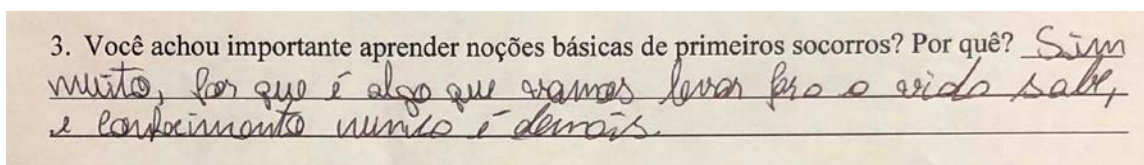 3. Você achou importante aprender noções básicas de primeiros socorros? Por quê? Sim
muito, por que é algo que vamos levar para a vida sabe,
e conhecimento nunca é demais.